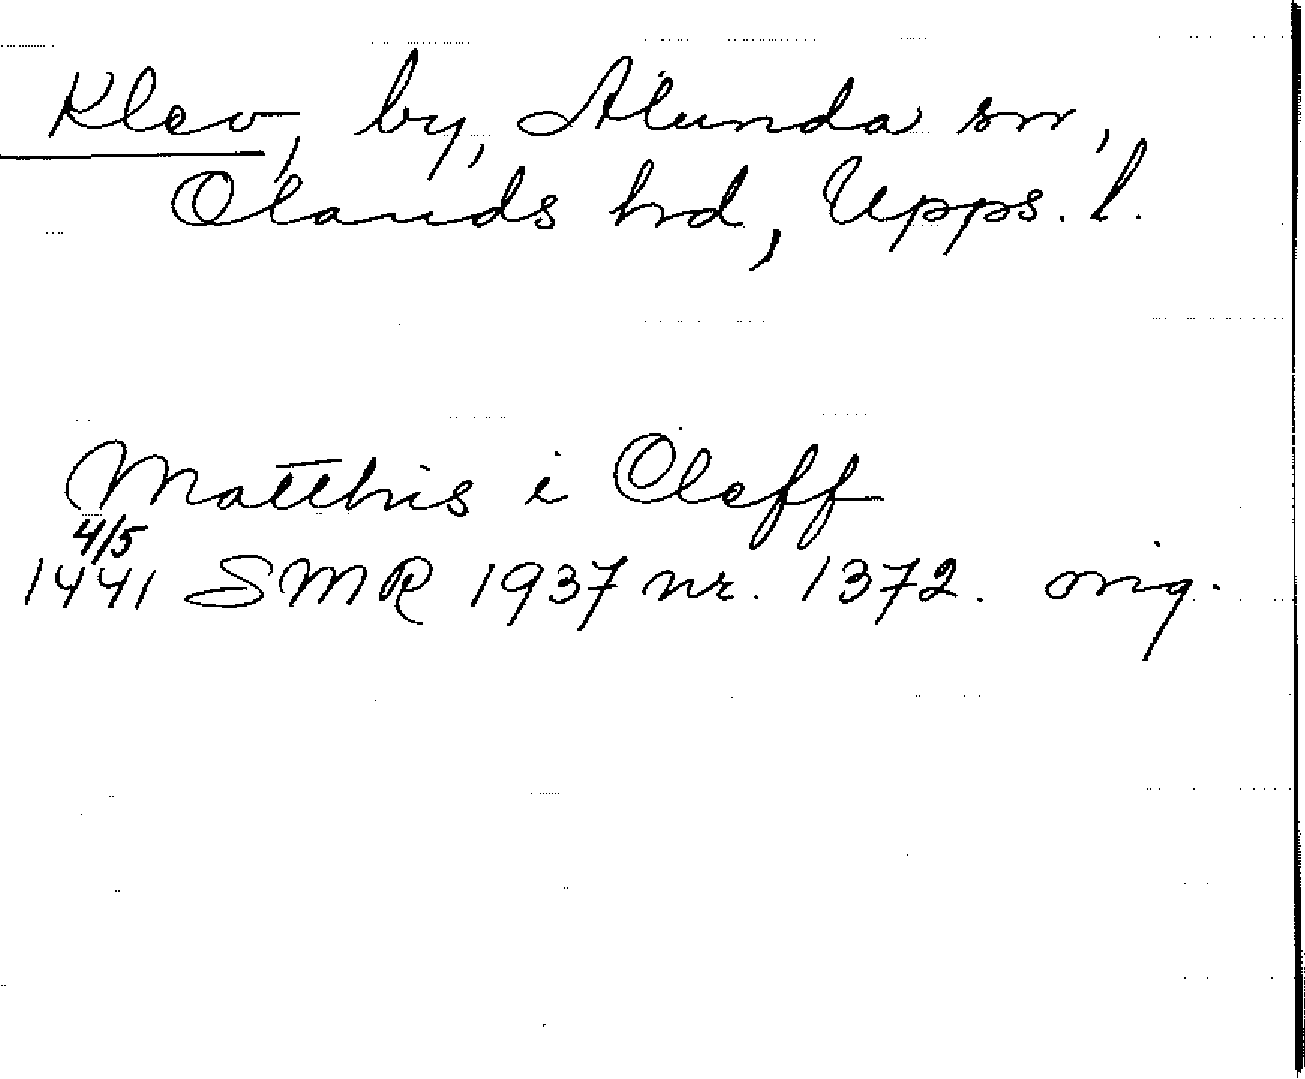 Klev, by, Alunda sn,
Olands hd, Upps. l.
Matthis i Cleff
4/5
1441 SMR 1937 nr. 1372. orig.